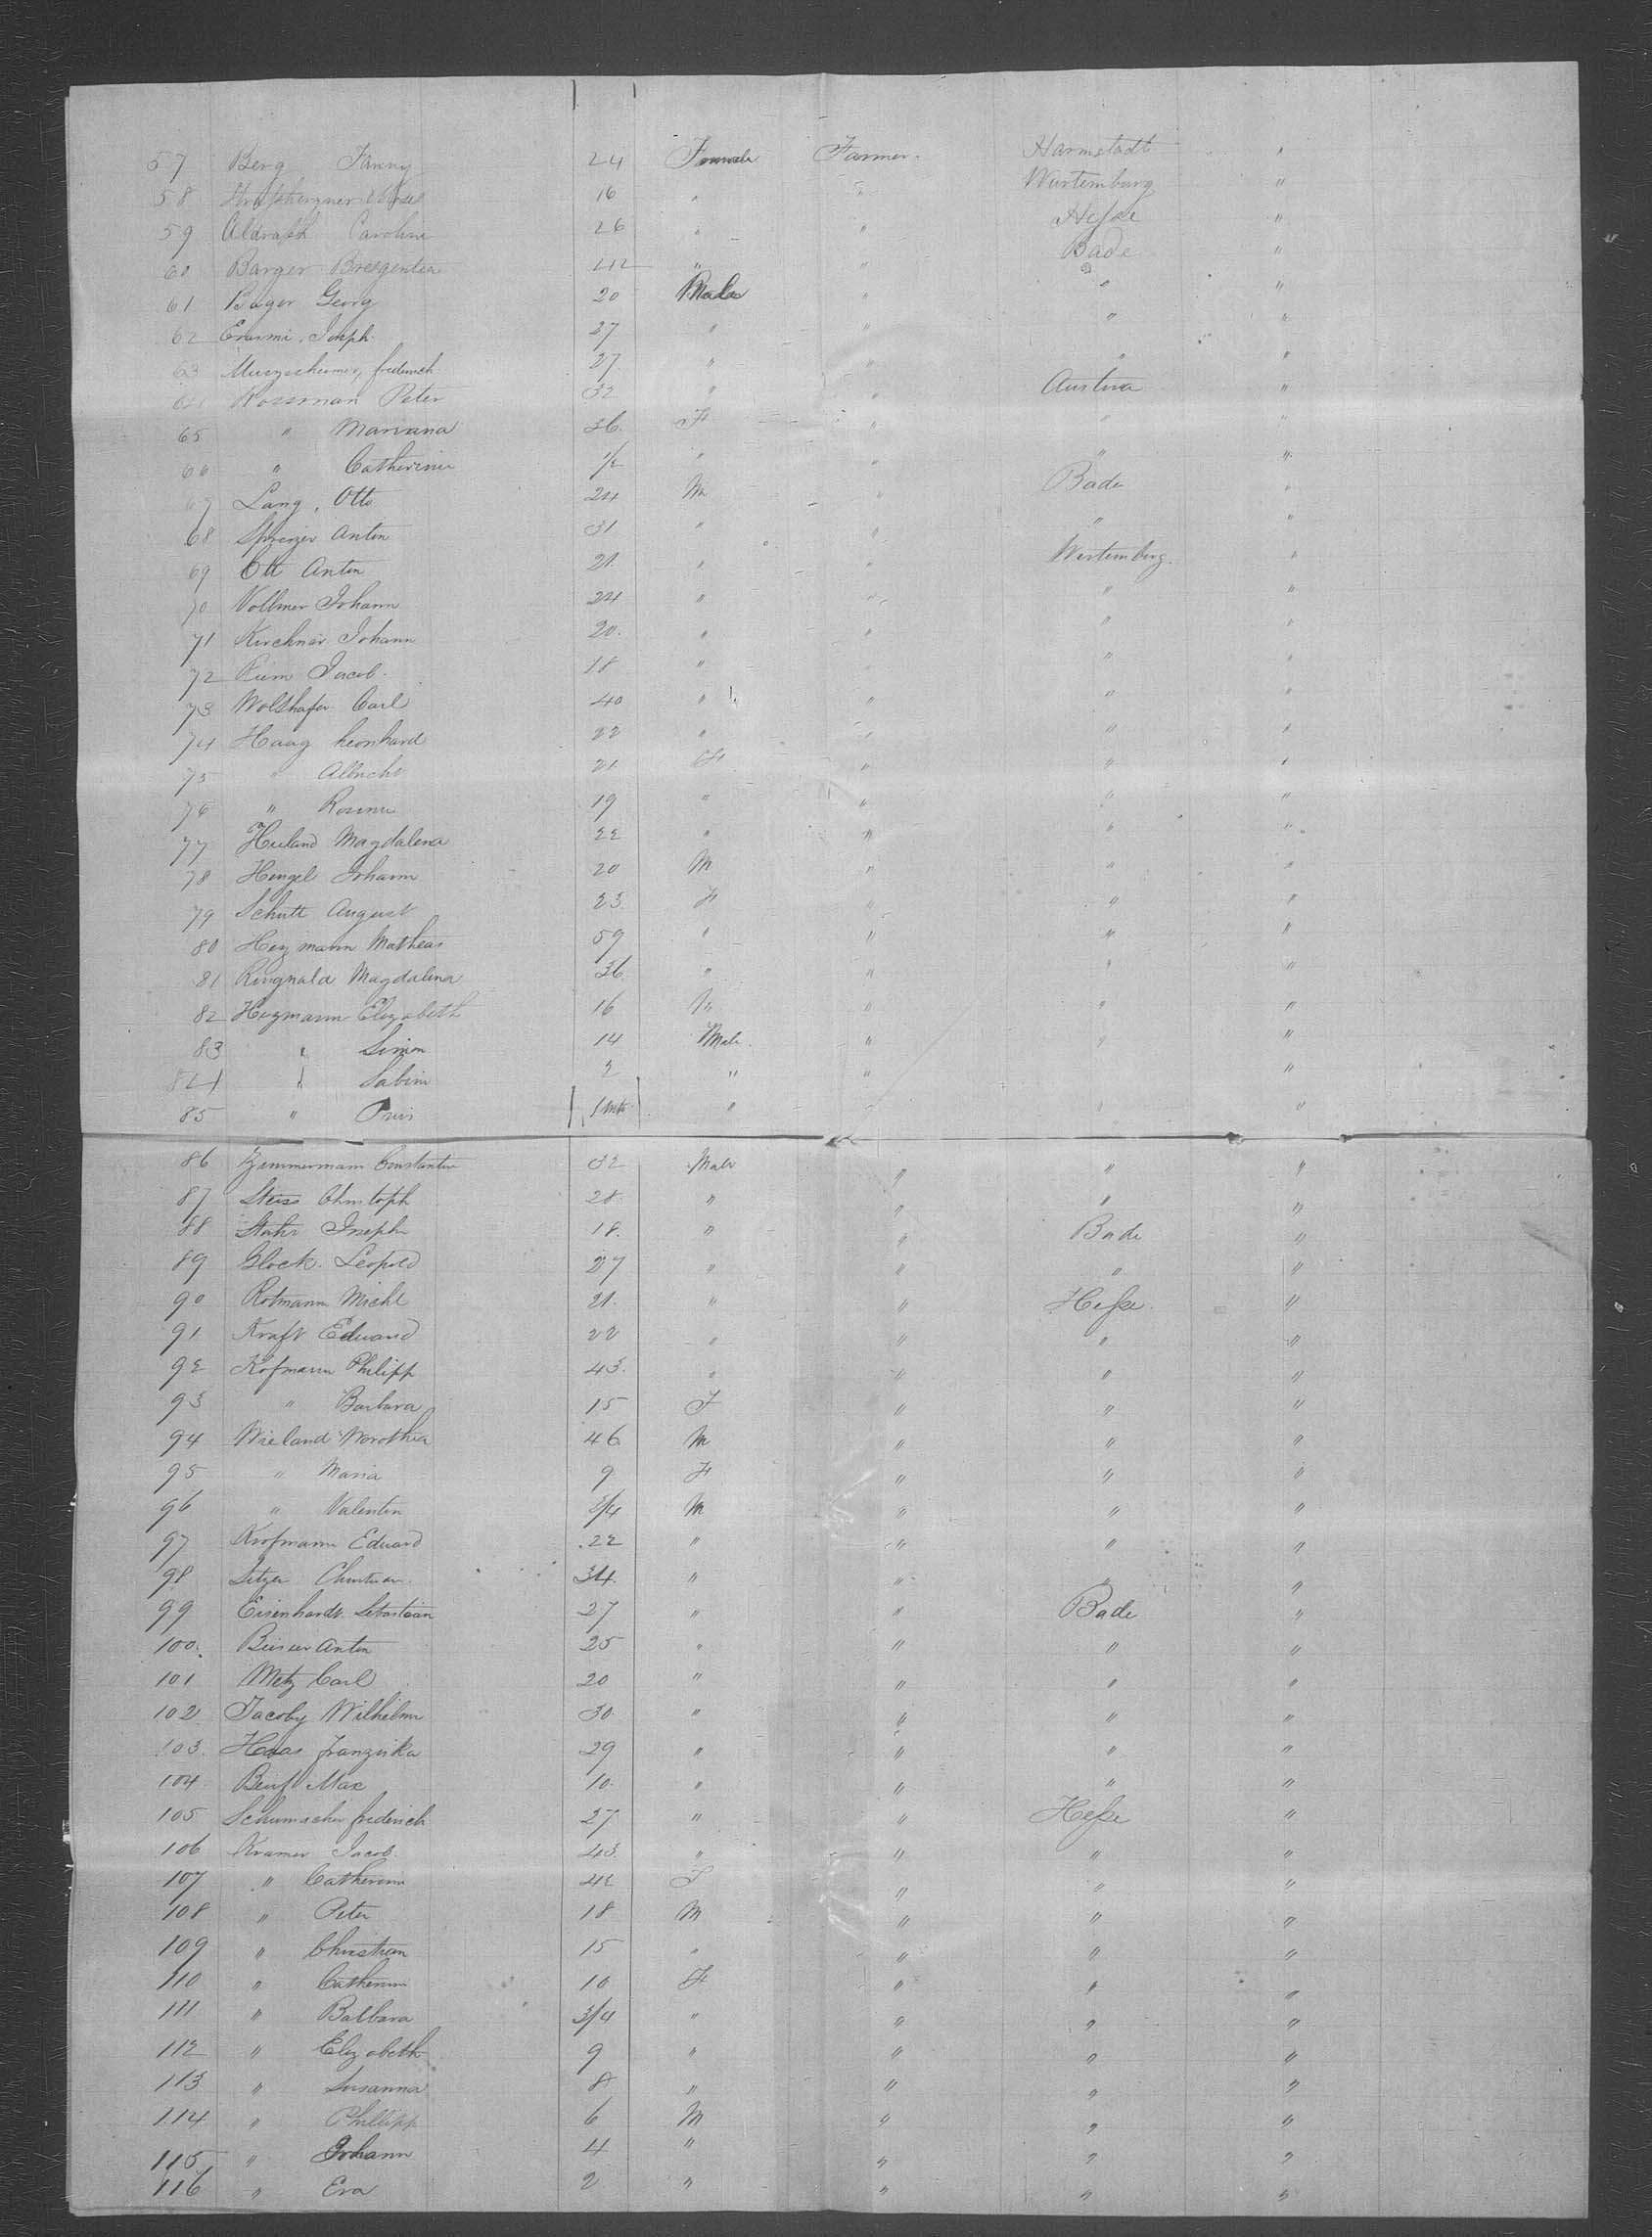 57 Berg Fanny 24 Female Farmer. Harmstadt "
58 16 " " Wurtemburg "
59 Aldrath Caroline 26 " " Hesse "
60 Barger 42 " " Bade "
61 Bager Georg 20 Male " " "
62 Joseph 27 " " " "
63 frederich 27 " " " "
64 Wossman Peter 32 " " Austria "
65 " Mariana 36. F " " "
66 " Catherine 1/2 " " " "
67 Lang, Otto 24 M " Bade "
68 Anton 31 " " " "
69 Ott Anton 21. " " Wurtemberg. "
70 Vollmer Johann 24 " " " "
71 Kirchner Johann 20. " " " "
72 Jacob. 18 " " " "
73 Carl 40 " " " "
74 Haag Leonhard 22 " " " "
75 " Albricht 21 F " " "
76 " Rosine 19 " " " "
77 Magdalena 22 " " " "
78 Hengel Johann 20 M " " "
79 Schutt August 23. F " " "
80 Hezmann Mathias 59 " " " "
81 Ringnald Magdalena 36. " " " "
82 Hezmann Elizabeth 16 " " "
83 " Simon 14 Male. " " "
84 " Sabine 2 " " "
85 " " " " "
86 Zimmermann Constantin 32 Male " " "
87 Steiss Christoph 28 " " " "
88 Joseph 18. " " Bade "
89 Block. Leopold 27 " " " "
90 Rotmann Michl 21. " " Hesse. "
91 Kraft Eduard 22 " " " "
92 Hofmann Philipp 43. " " " "
93 " Barbara 15 F " " "
94 Wieland Dorothea 46 M " " "
95 " Maria 9 F " " "
96 " Valentin 3/4 M " " "
97 Eduard 22 " " " "
98 Sitzer Christian. 34. " " " "
99 Eisenhardt. Sebastian 27 " " Bade "
100. Anton 25 " " " "
101 Metz Carl 20 " " " "
102 Jacoby Wilhelm 30. " " " "
103. Haas franziska 29 " " " "
104 Max 10. " " " "
105 Schumacher frederich 27 " " Hesse "
106 Kramer Jacob. 43. " " " "
107 " Catherine 42 F " " "
108 " Peter 18 M " " "
109 " Christian 15 " " " "
110 " Catherine 10 F " " "
111 " Balbara 3/4 " " " "
112 " Elizabeth 9 " " " "
113 " Susanna 8 " " " "
114 " Phillipp 6 M " " "
115 " Johann 4 " " " "
116 " Eva 2 " " " "